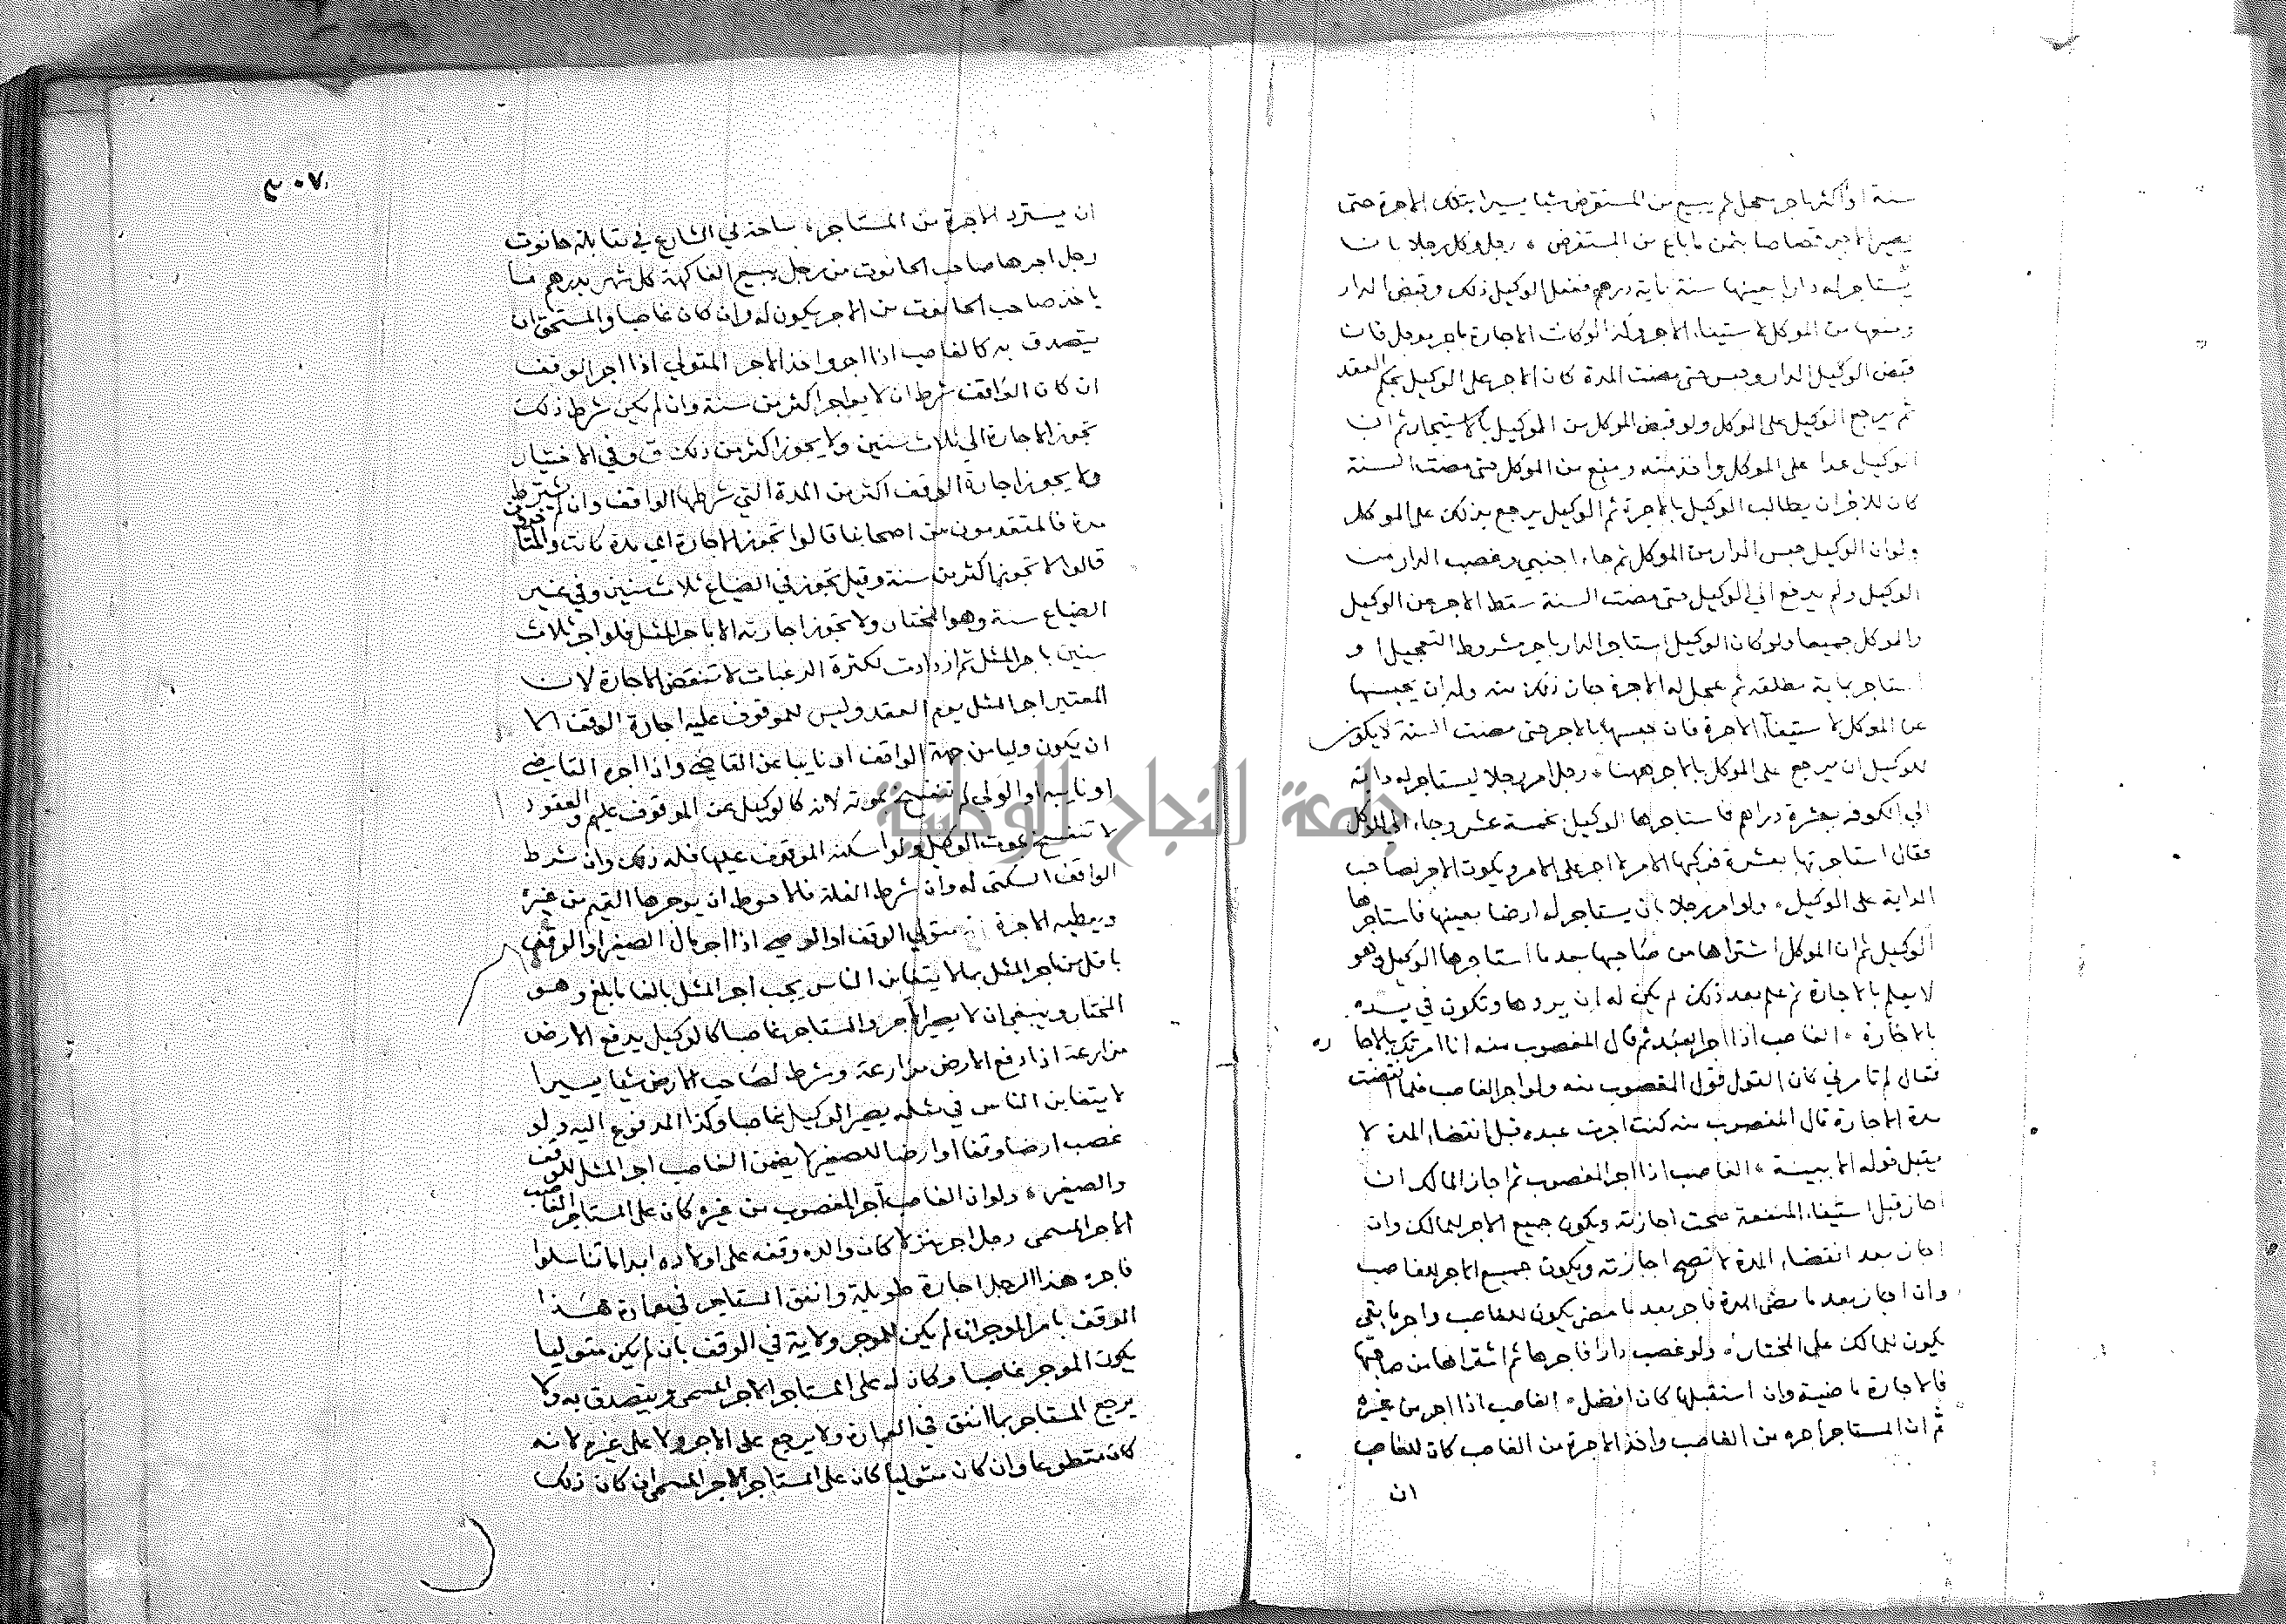 سنة او اكثر باجر معجل ثم يبيع من المستقرض شيا يسيرا بتلك الاجرة حتى
يصير الاجر قصاصا بثمن ما باع من المستقرض ٥ رجل وكل رجلا بان
يستاجر له دارا بعينها سنة بماية درهم ففعل الوكيل ذلك وقبض الدار
ومنعها من الموكل لاستيفاء الاجر وله ذلك ان كانت الاجارة باجر فان
قبض الوكيل الدار وحبس حتى مضت المدة كان الاجر على الوكيل بحكم العقد
ثم يرجع الوكيل على الموكل ولو قبض الموكل من الوكيل ثم ان
الوكيل عدا على الموكل واخذ منه ومنع من الموكل حتى مضت السنة
كان للاجر ان يطالب الوكيل بالاجرة ثم الوكيل يرجع بذلك على الموكل
ولو ان الوكيل حبس الدار من الموكل ثم جاء اجنبي وغصب الدار من
الوكيل ولم يدفع الى الوكيل حتى مضت السنة سقط الاجر عن الوكيل
والموكل جميعا ولو كان الوكيل استاجر الدار باجر مشروط التعجيل او
استاجر بماية مطلقة ثم عجل له الاجرة جاز ذلك منه وله ان يحبسها
عن الموكل لاستيفاء الاجرة فان حبسها بالاجر حتى مضت السنة لا يكون
للوكيل ان يرجع على الموكل بالاجر ههنا ٥ رجل امر رجلا ليستاجر له دابة
الى الكوفة بعشرة دراهم فاستاجرها الوكيل بخمسة عشر وجاء الى الموكل
فقال استاجرتها بعشرة فركبها الامر لا اجر على الامر ويكون الاجر لصاحب
الدابة على الوكيل ٥ ولو امر رجلا بان يستاجر له ارضا بعينها فاستاجرها
الوكيل ثم ان الموكل اشتراها من صاحبها بعد ما استاجرها الوكيل وهو
لا يعلم بالاجارة ثم علم بعد ذلك لم يكن له ان يردها وتكون في يده
بالاجارة ٥ الغاصب اذا اجر العبد ثم قال المغصوب منه انا امرتك بالاجارة
فقال لم تامرني كان القول قول المغصوب منه ولو اجر الغاصب فلما انقضت
مدة الاجارة قال المغصوب منه كنت اجزت عبده قبل انقضاء المدة لا
يقبل قوله الا ببينة ٥ الغاصب اذا اجر المغصوب ثم اجاز المالك ان
اجاز قبل استيفاء المنفعة صحت اجازته ويكون جميع الاجر للمالك وان
اجاز بعد انقضاء المدة لا تصح اجازته ويكون جميع الاجر للغاصب
وان اجاز بعد ما مضى المدة فاجر بعد ما مضى يكون للغاصب واجر ما بقي
يكون للمالك على المختار ٥ ولو غصب دارا فاجرها ثم اشتراها من صاحبها
فالاجارة ماضية وان استقبلها كان افضل ٥ الغاصب اذا اجر من غيره
ثم ان المستاجر اجره من الغاصب واخذ الاجرة من الغاصب كان للغاصب
ان
ان يسترد الاجرة من المستاجر ٥ ساحة في الشارع في مقابلة حانوت
رجل اجرها صاحب الحانوت من رجل يبيع الفاكهة كل شهر بدرهم فما
ياخذ صاحب الحانوت من الاجر يكون له وان كان غاصبا والمستحق ان
يتصدق به كالغاصب اذا اجر واخذ الاجر المتولي اذا اجر الوقف
ان كان الواقف شرط ان لا يواجر اكثر من سنة وان لم يكن شرط ذلك
تجوز الاجارة الى ثلاث سنين ولا يجوز اكثر من ذلك وفي الاختيار
ولا يجوز اجارة الوقف اكثر من المدة التي شرطها الواقف وان لم يشترط
مدة فالمتقدمون من اصحابنا قالوا تجوز الاجارة اي مدة كانت والمتاخرون
قالوا لا تجوز اكثر من سنة وقيل تجوز في الضياع ثلاث سنين وفي غير
الضياع سنة وهو المختار ولا تجوز اجارته الا باجر المثل فلو اجر ثلاث
سنين باجر المثل ثم ازدادت لكثرة الرغبات لا تنقض الاجارة لان
المعتبر اجر المثل يوم العقد وليس للموقوف عليه اجارة الوقف الا
ان يكون وليا من جهة الواقف او نايبا عن القاضي واذا اجره القاضي
او نايبه او الولي لم تنفسخ بموته لانه كالوكيل عن الموقوف عليهم والعقود
لا تنفسخ بموت الوكيل ولو اسكنه الموقوف عليها فله ذلك وان شرط
الواقف السكنى له وان شرط الغلة فالاحوط ان يوجرها القيم من غيره
ويعطيه الاجرة متولي الوقف او الوصي اذا اجر مال الصغير او الوقف
باقل من اجر المثل بما لا يتغابن الناس يجب اجر المثل بالغا ما بلغ وهو
المختار وينبغي ان لا يصير الآجر والمستاجر غاصبا كالوكيل يدفع الارض
مزارعة اذا دفع الارض مزارعة وشرط لصاحب الارض شيا يسيرا
لا يتغابن الناس في مثله يصير الوكيل غاصبا وكذا المدفوع اليه ولو
غصب ارضا وقفا او ارضا للصغير يضمن الغاصب اجر المثل للوقف
والصغير ٥ ولو ان الغاصب آجر المغصوب من غيره كان على المستاجر الغاصب
الاجر المسمى رجل اجر منزلا كان والده وقفه على اولاده ابدا ما تناسلوا
فاجره هذا الرجل اجارة طويلة وانفق المستاجر في عمارة هذا
الوقف بامر الموجر ان لم يكن للموجر ولاية في الوقف بان لم يكن متوليا
يكون الموجر غاصبا وكان له على المستاجر الاجر المسمى ويتصدق به ولا
يرجع المستاجر بما انفق في العمارة ولا يرجع على الاجر ولا على غيره لانه
كان متطوعا وان كان متوليا كان على المستاجر الاجر المسمى ان كان ذلك
جامعة النجاح الوطنية